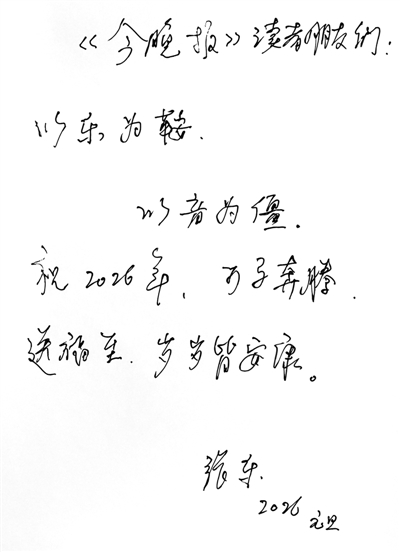 《今晚报》读者朋友们:
以东为鞍.
以音为僵.
祝2026年, 万子奔腾.
送福至. 岁岁皆安康。
张东.
2026 元旦